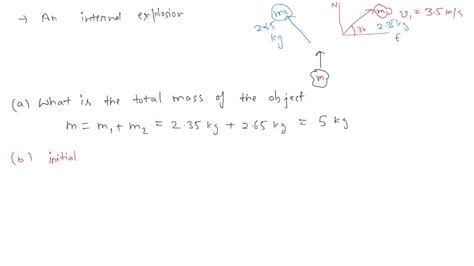 → An internal explosion
m2
2.65
kg
m
N
m1
v1 = 3.5 m/s
30
2.35 kg
E
(a) What is the total mass of the object
m = m1 + m2 = 2.35 kg + 2.65 kg = 5 kg
(b) initial